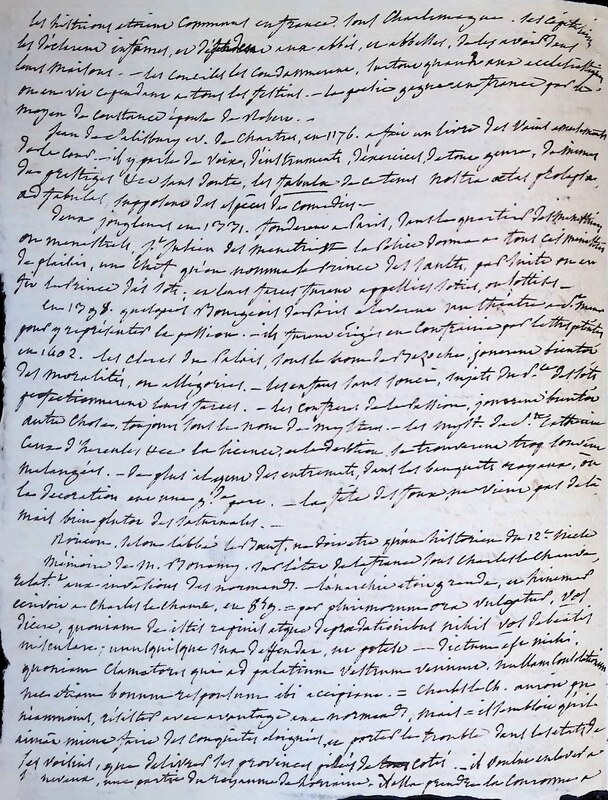 les histrions etaient communs en france sous Charlemagne. les
les déclarent infâmes, et défendent aux abbés, et abbesses, de les avoir dans
leurs maisons. – les conciles les condamnerent, surtout quand aux ecclesiastiques
on en vit cependant a tous les festins. – la poesie gagne en france par le
moyen de constance épouse de robert. –
Jean de Salisbury ev. de Chartres, en 1176. a fait un livre des vains amusements
de la cour. – il y parle de voix, d'instruments, de tout genre, de mimes
de prestiges &ce sans doute, les fabula de ce tems nostra aetas prolapsa
ad fabulas, supposent des especes de comedies –
deux jongleurs en 1331. fonderent a Paris, dans le quartier des menetriers
ou menestrels, St Julien des menetriers la Police donna a tous ces
un Chef qu'on nomma le Prince des sauts, par suite on en
fit le Prince des sots, et leurs farces furent appellées soties, ou sottises –
en 1398. quelques Bourgeois de Paris eleverent un théatre a St maur
pour y représenter la passion. – ils furent érigés en Confrairie par lettres patentes
en 1402. les clercs du Palais, sous le nom de Bazoche, jouerent bientot
des moralités, ou allégories. – les enfans sans souci, sujets du Pce des sots
perfectionnerent leurs farces. – les confreres de la Passion, jouerent bientot
autre chose, toujours sous le nom de mysteres – les myst. de Ste Catherine
ceux d'hercules &ce la licence, et la devotion, se trouverent trop souvent
melangées. – de plus il y eut des entremets, dans les banquets royaux, ou
la decoration eut une gde part. – la fête des foux ne vient pas de là
mais bien plutot des saturnales. –
selon l'abbé le Boeuf, ne doit etre qu'un historien du 12e siecle
Mémoire de M. Bonamy. sur l'état de la france sous Charles le Chauve,
relat.t aux invasions des normands. – l'anarchie etoit grande, et hincmar
écrivoit a Charles le Chauve, en 859. = per plurimorum ora vulgatur, vos
dicere, quoniam de istis rapinis atque depredationibus nihil vos debeatis
misculare; unusquisque sua deffendat, ut potest – dictum est mihi,
quoniam clamatores qui ad palatium vestrum veniunt, nullam consolationem
nec etiam bonum responsum ibi accipiant. = Charles le Ch. auroit pu
néanmoins, resister avec avantage aux normands, mais = il semble qu'il
aimât mieux faire des conquêtes éloignées, et porter le trouble dans les etats de
ses voisins, que délivrer les provinces de coté. – il voulut enlever a
neveux, une partie du royaume de lorraine. Il alla prendre la couronne a